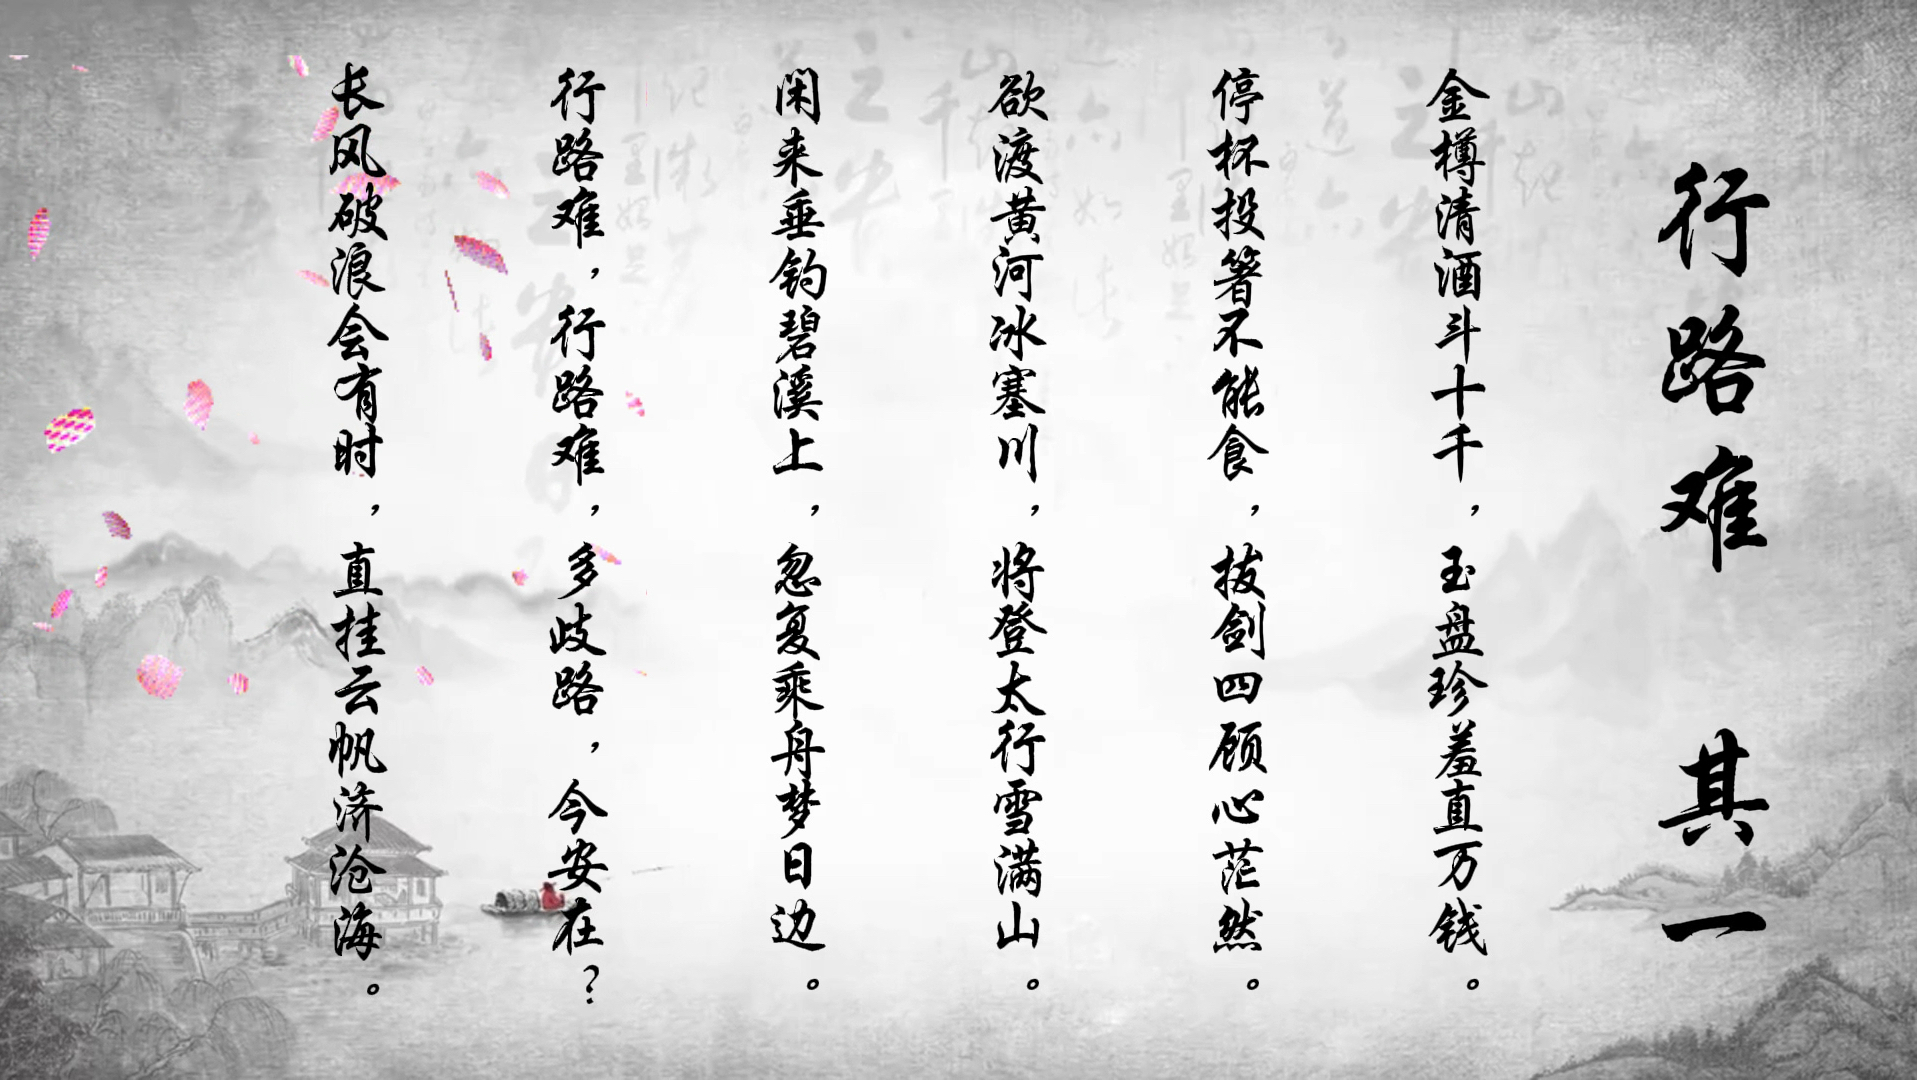 行路难 其一
金樽清酒斗十千，玉盘珍羞直万钱。
停杯投箸不能食，拔剑四顾心茫然。
欲渡黄河冰塞川，将登太行雪满山。
闲来垂钓碧溪上，忽复乘舟梦日边。
行路难，行路难，多歧路，今安在？
长风破浪会有时，直挂云帆济沧海。